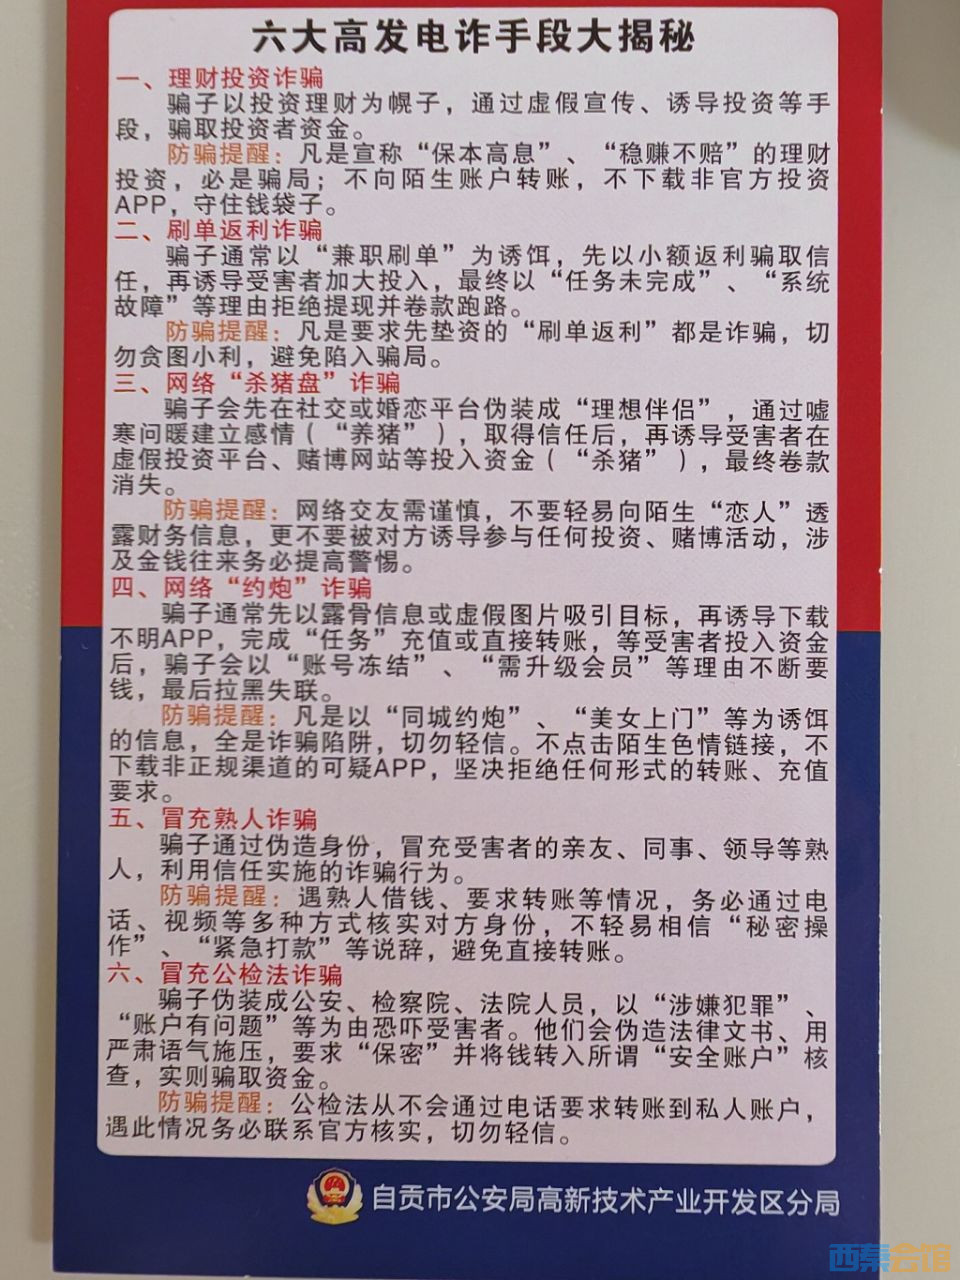 六大高发电诈手段大揭秘
一、理财投资诈骗
骗子以投资理财为幌子，通过虚假宣传、诱导投资等手
段，骗取投资者资金。
防骗提醒：凡是宣称“保本高息”、“稳赚不赔”的理财
投资，必是骗局；不向陌生账户转账，不下载非官方投资
APP，守住钱袋子。
二、刷单返利诈骗
骗子通常以“兼职刷单”为诱饵，先以小额返利骗取信
任，再诱导受害者加大投入，最终以“任务未完成”、“系统
故障”等理由拒绝提现并卷款跑路。
防骗提醒：凡是要求先垫资的“刷单返利”都是诈骗，切
勿贪图小利，避免陷入骗局。
三、网络“杀猪盘”诈骗
骗子会先在社交或婚恋平台伪装成“理想伴侣”，通过嘘
寒问暖建立感情（“养猪”），取得信任后，再诱导受害者在
虚假投资平台、赌博网站等投入资金（“杀猪”），最终卷款
消失。
防骗提醒：网络交友需谨慎，不要轻易向陌生“恋人”透
露财务信息，更不要被对方诱导参与任何投资、赌博活动，涉
及金钱往来务必提高警惕。
四、网络“约炮”诈骗
骗子通常先以露骨信息或虚假图片吸引目标，再诱导下载
不明APP，完成“任务”充值或直接转账，等受害者投入资金
后，骗子会以“账号冻结”、“需升级会员”等理由不断要
钱，最后拉黑失联。
防骗提醒：凡是以“同城约炮”、“美女上门”等为诱饵
的信息，全是诈骗陷阱，切勿轻信。不点击陌生色情链接，不
下载非正规渠道的可疑APP，坚决拒绝任何形式的转账、充值
要求。
五、冒充熟人诈骗
骗子通过伪造身份，冒充受害者的亲友、同事、领导等熟
人，利用信任实施的诈骗行为。
防骗提醒：遇熟人借钱、要求转账等情况，务必通过电
话、视频等多种方式核实对方身份，不轻易相信“秘密操
作”、“紧急打款”等说辞，避免直接转账。
六、冒充公检法诈骗
骗子伪装成公安、检察院、法院人员，以“涉嫌犯罪”、
“账户有问题”等为由恐吓受害者。他们会伪造法律文书、用
严肃语气施压，要求“保密”并将钱转入所谓“安全账户”核
查，实则骗取资金。
防骗提醒：公检法从不会通过电话要求转账到私人账户，
遇此情况务必联系官方核实，切勿轻信。
自贡市公安局高新技术产业开发区分局
西秦会馆